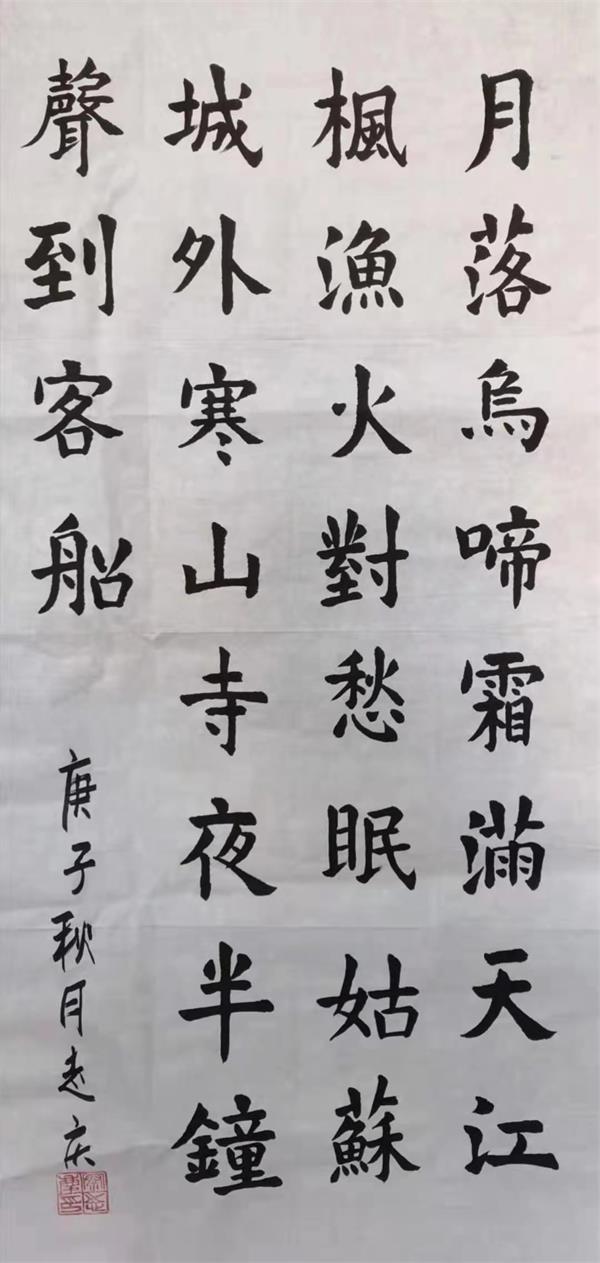 月落烏啼霜滿天江
楓漁火對愁眠姑蘇
城外寒山寺夜半鐘
聲到客船
庚子秋月志庆